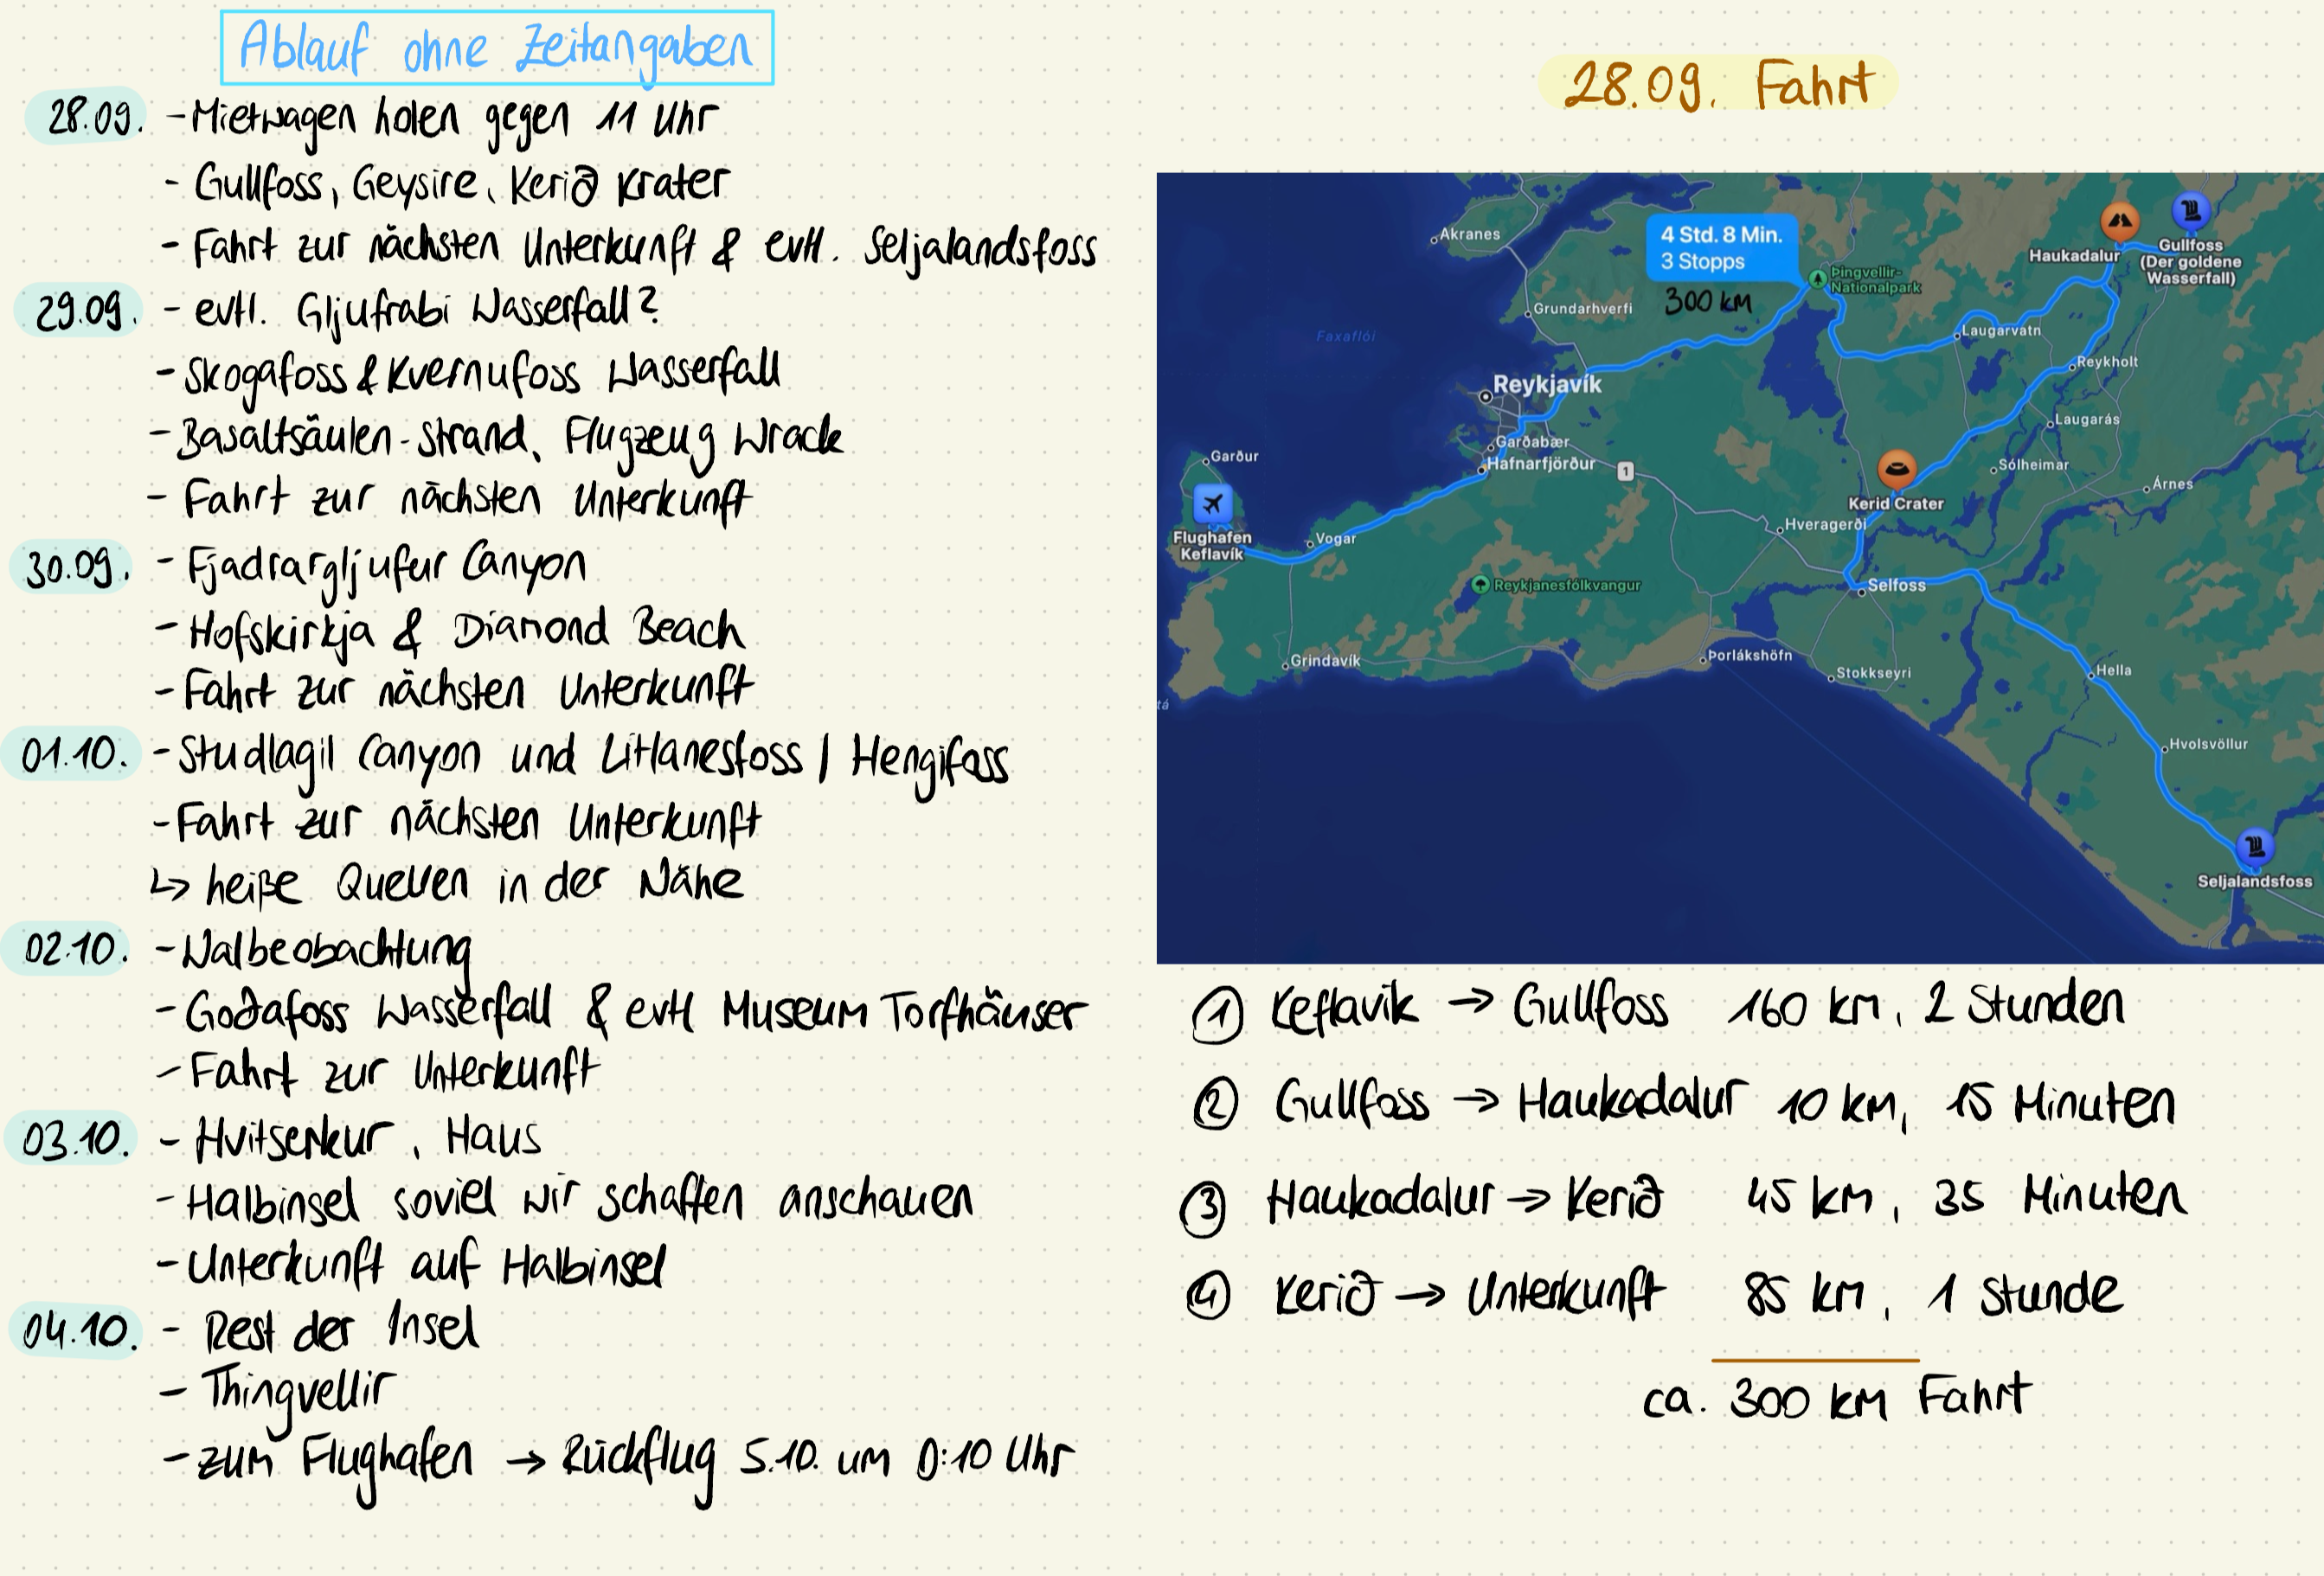 Ablauf ohne Zeitangaben
28.09. - Mietwagen holen gegen 11 Uhr
- Gullfoss, Geysire, Kerið Krater
- Fahrt zur nächsten Unterkunft & evtl. Seljalandsfoss
29.09. - evtl. Gljufrabi Wasserfall?
- Skogafoss & Kvernufoss Wasserfall
- Basaltsäulen-Strand, Flugzeug Wrack
- Fahrt zur nächsten Unterkunft
30.09. - Fjadrargljufur Canyon
- Hofskirkja & Diamond Beach
- Fahrt zur nächsten Unterkunft
01.10. - Studlagil Canyon und Litlanesfoss / Hengifoss
- Fahrt zur nächsten Unterkunft
↳ heiße Quellen in der Nähe
02.10. - Walbeobachtung
- Goðafoss Wasserfall & evtl Museum Torfhäuser
- Fahrt zur Unterkunft
03.10. - Hvitserkur, Haus
- Halbinsel soviel wir schaffen anschauen
- Unterkunft auf Halbinsel
04.10. - Rest der Insel
- Thingvellir
- zum Flughafen → Rückflug 5.10. um 0:10 Uhr
28.09. Fahrt
Akranes
4 Std. 8 Min.
3 Stopps
300 km
Þingvellir-
Nationalpark
Haukadalur
Gullfoss
(Der goldene
Wasserfall)
Grundarhverfi
Faxaflói
Laugarvatn
Reykholt
Reykjavík
Laugarás
Garðabær
Garður
Hafnarfjörður
1
Sólheimar
Árnes
Kerid Crater
Hveragerði
Flughafen
Keflavík
Vogar
Reykjanesfólkvangur
Selfoss
Grindavík
Þorlákshöfn
Stokkseyri
Hella
tá
Hvolsvöllur
Seljalandsfoss
① Keflavik → Gullfoss 160 km, 2 Stunden
② Gullfoss → Haukadalur 10 km, 15 Minuten
③ Haukadalur → Kerið 45 km, 35 Minuten
④ Kerið → Unterkunft 85 km, 1 Stunde
ca. 300 km Fahrt